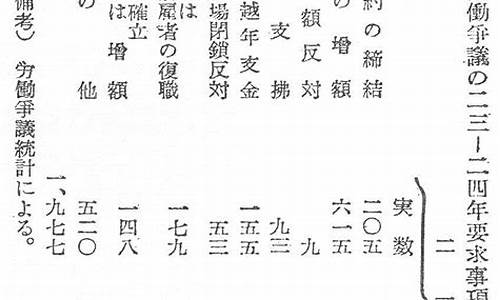 働争議の二三ー二四年要求事項
二
実数
約の締結 二〇五
の増額 六一五
額反対 九
支払 九三
越年支金 一五五
場閉鎖反対 五三
は
雇者の復職 一七九
確立
は増額 一四八
の他 五二〇
一、九七七
備考）労働争議統計による。